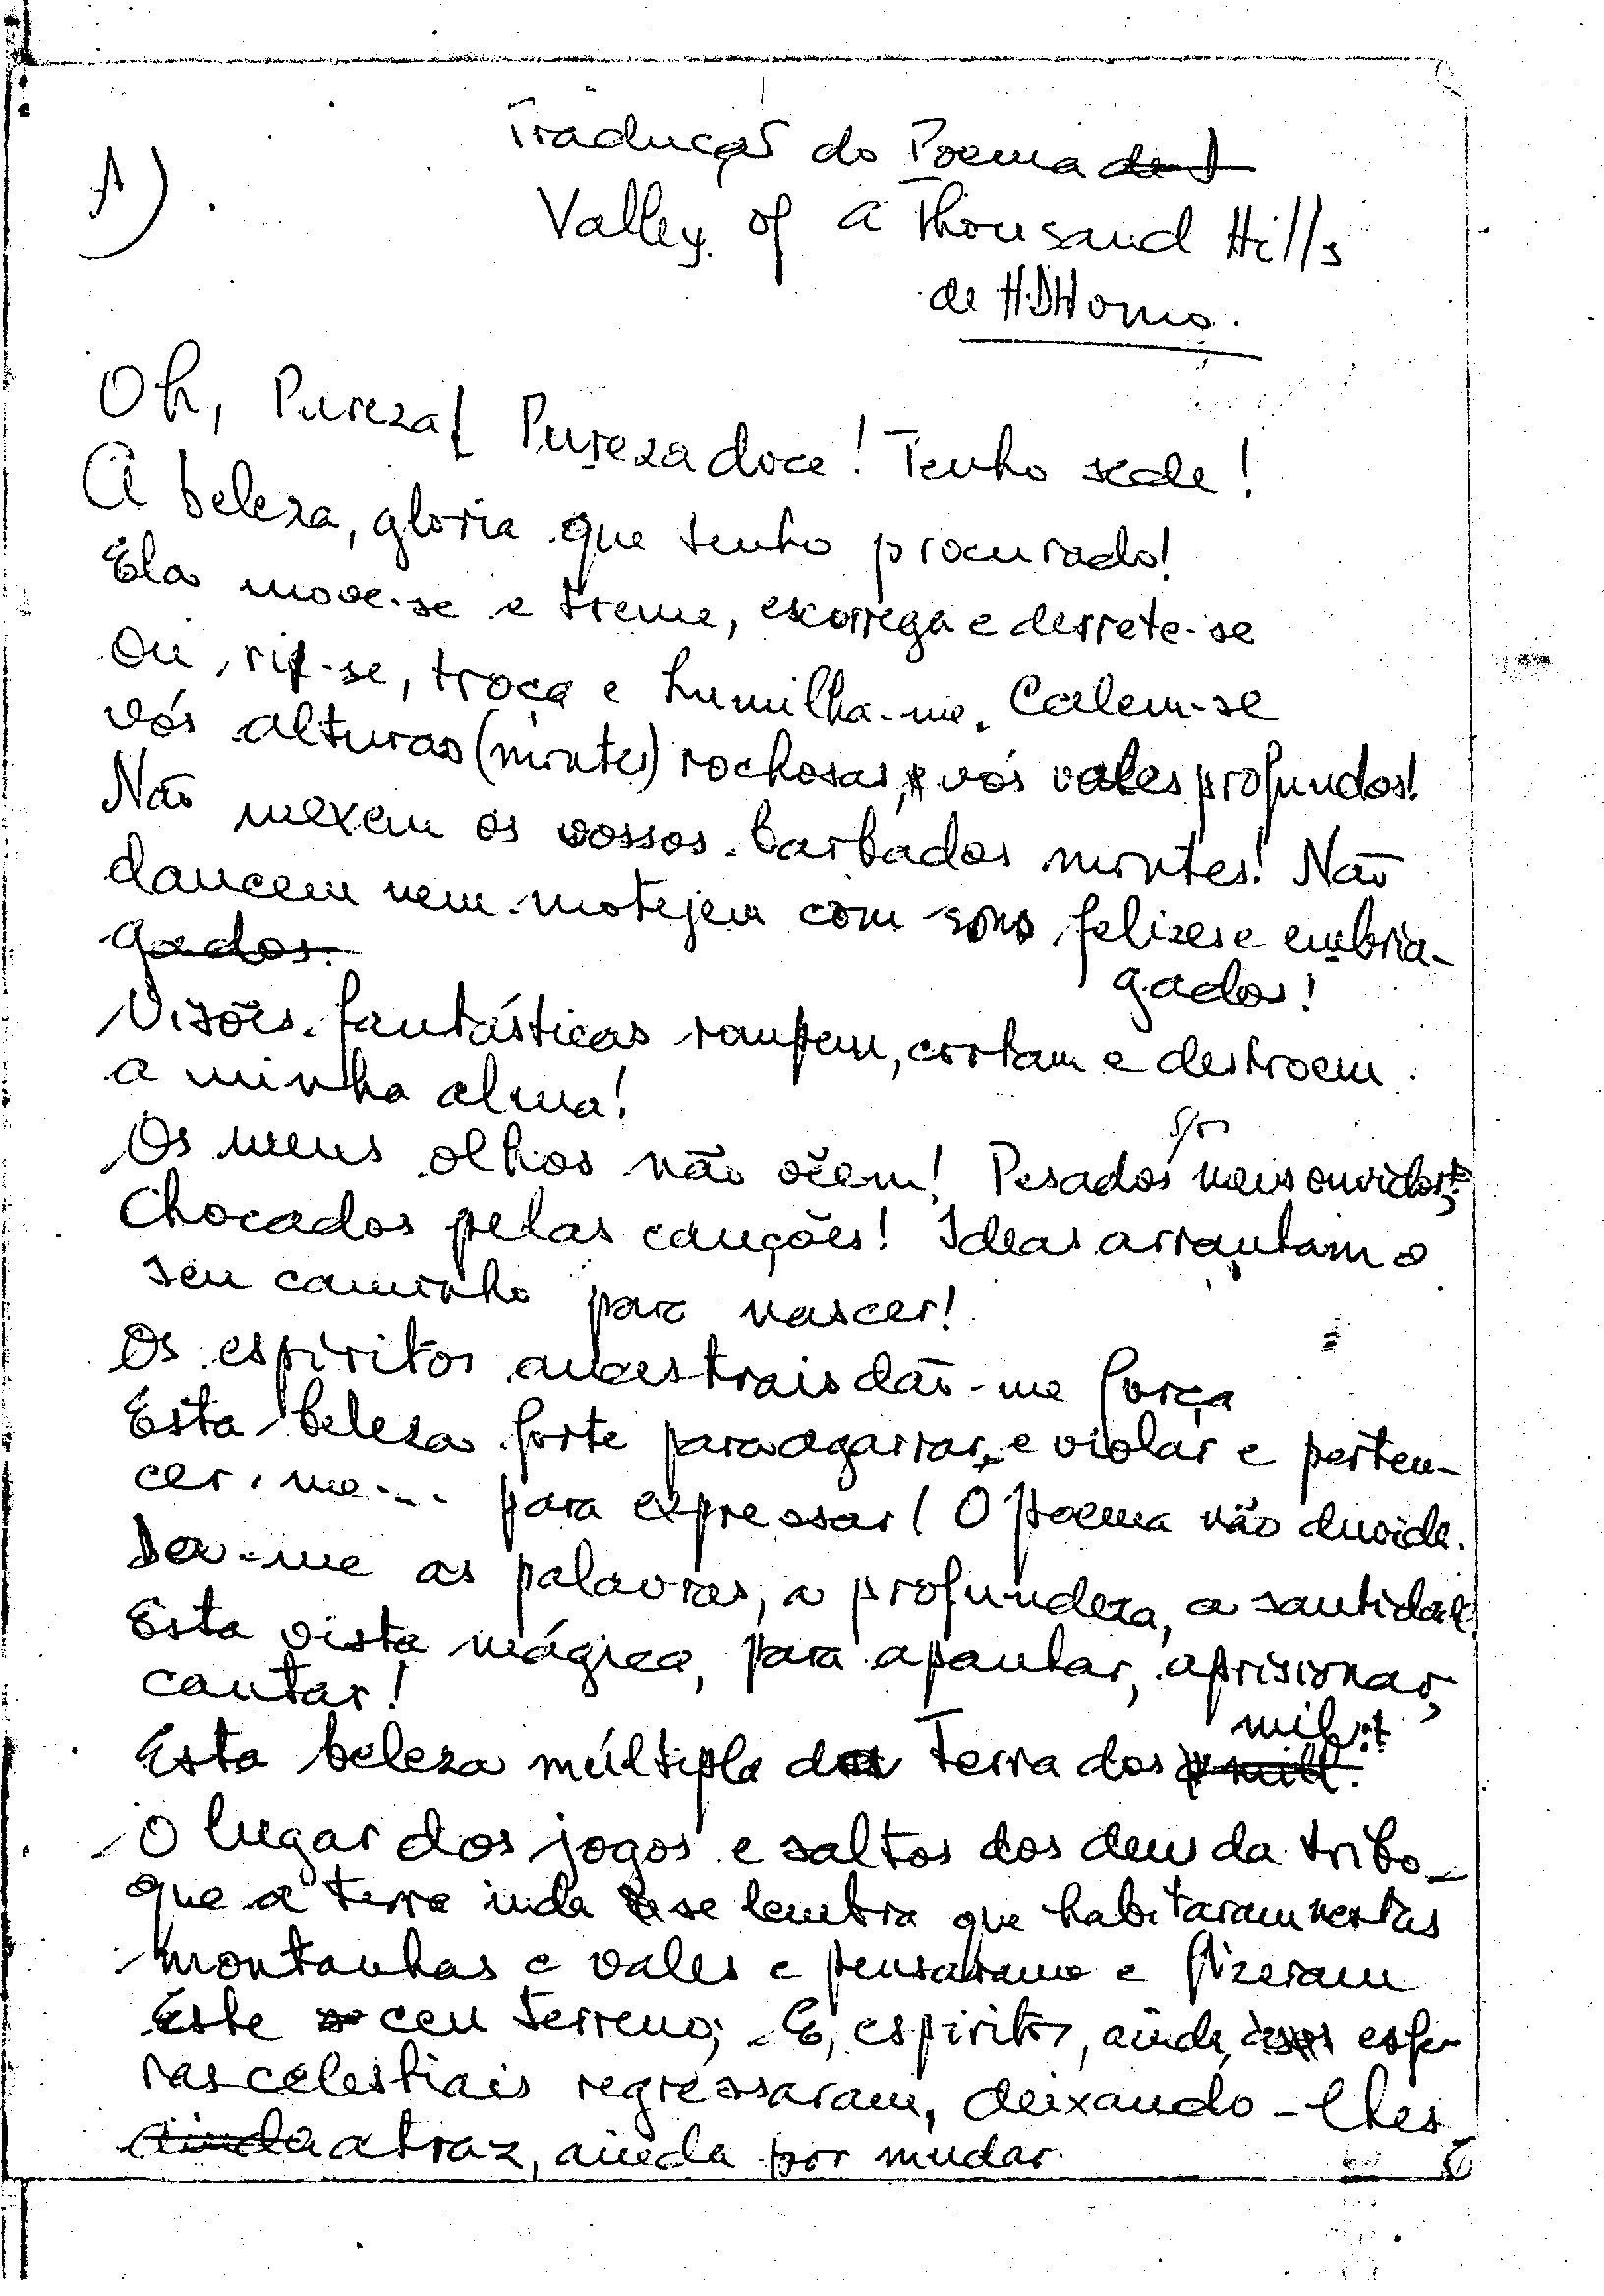 A)
Tradução do Poema
Valley of a Thousand Hills
de H.D Homo.
Oh, Pureza! Pureza doce! Tenho sede!
A beleza, gloria que tenho procurado!
Ela move-se e treme, escorrega e derrete-se
Ou, rir-se, troça e humilha-me. Calem-se
vós alturas (montes) rochosas, vós vales profundos!
Não mexem os vossos barbados montes! Não
dancem nem motejem com sons felizes e embria-
gados!
Visões fantásticas rompem, cortam e destroem
a minha alma!
Os meus olhos não vêem! Pesados são meus ouvidos!
Chocados pelas canções! Ideas arrantam o
seu caminho para nascer!
Os espiritos ancestrais dão-me força
Esta beleza forte para agarrar, e violar e perten-
cer-me... para expressar! O poema não duvide.
Dou-me as palavras, a profundeza, a santidade
Esta vista mágica, para apanhar, aprisionar,
cantar!
Esta beleza múltipla da Terra dos mil!
O lugar dos jogos e saltos dos deus da tribo_
que a terra inda se lembra que habitaram nestas
montanhas e vales e pensaram e fizeram
Este ceu terreno; E, espiritos, ainda, esfe-
ras celestiais regressaram, deixando-lhes
atraz, ainda por mudar.